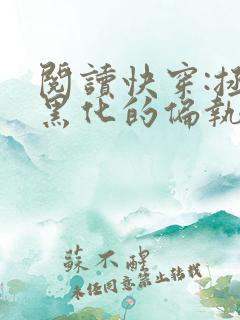 閱讀快穿:拯
黑化的偏執
蘇不醒
未經同意禁止轉載